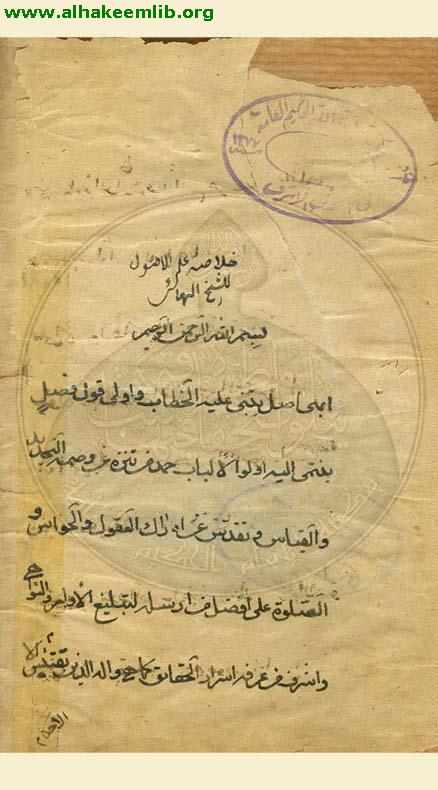 www.alhakeemlib.org
خلاصه علم الاصول
للشيخ البهائي
بسم الله الرحمن الرحيم
ابهى اصل يبتنى عليه الخطاب واولى قول فصل
ينتمى اليه اولوا الألباب حمد من تنزه عن وصمة التحديد
والقياس وتقدس عن ادراك العقول والحواس و
الصلوة على افضل من ارسله لتبليغ الأوامر والنواهي
واشرف من عرفه اسرار الحقائق كما هي واله الذين تقتبس
الاحكام